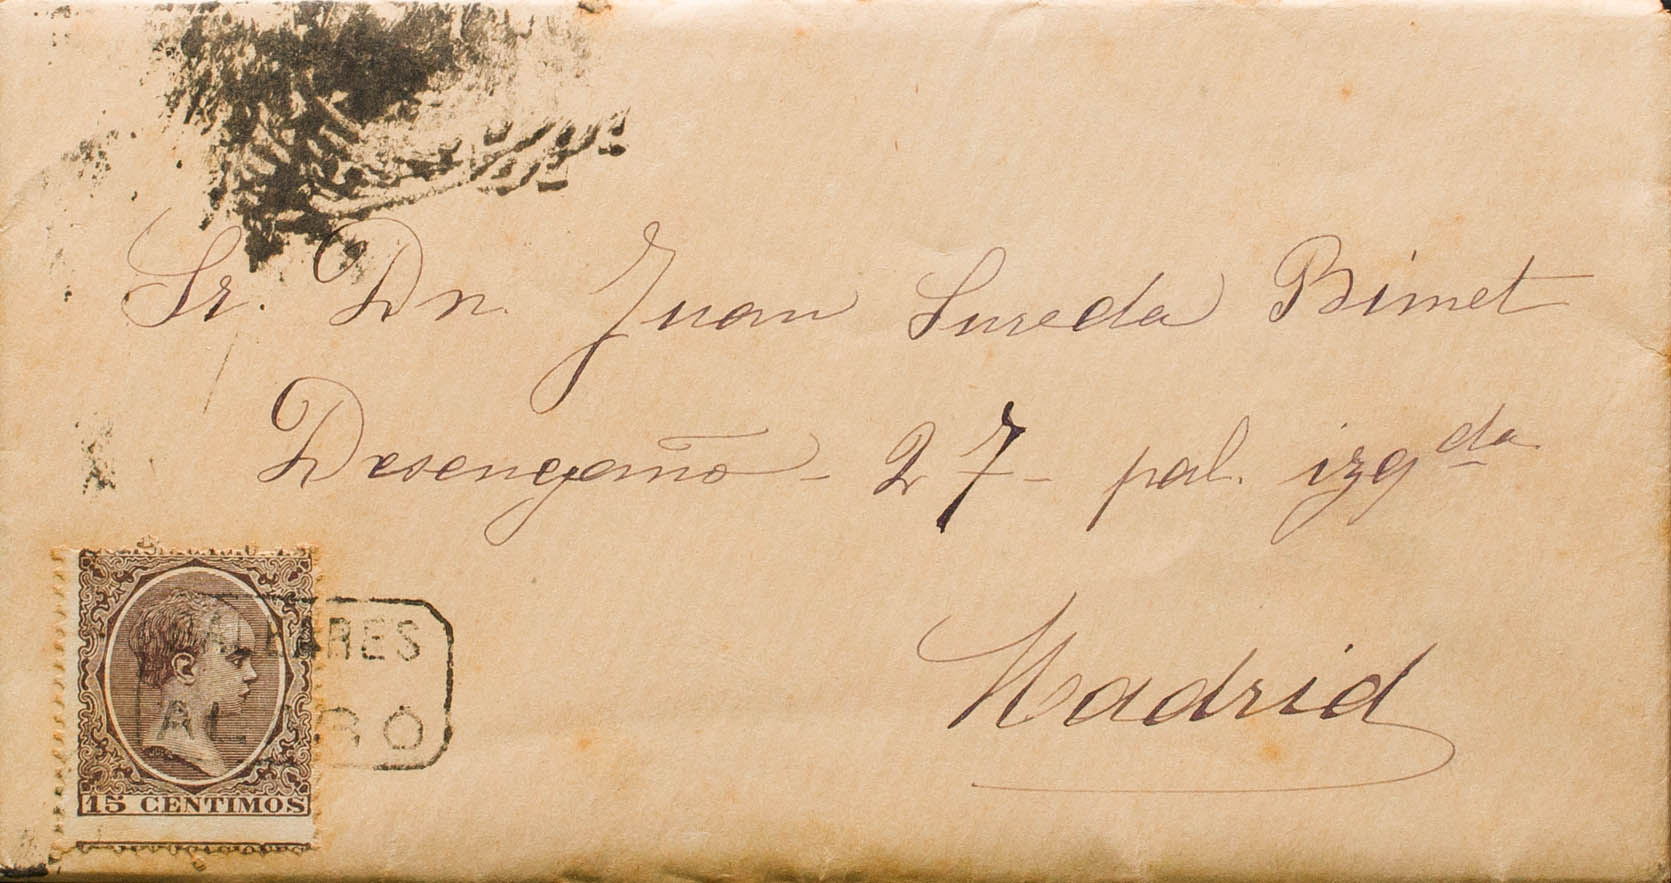 Sr. Dn. Juan Sureda Bimet
Desengaño - 27 - pal. izqda
Madrid
BALEARES
ALARÓ
15 CENTIMOS